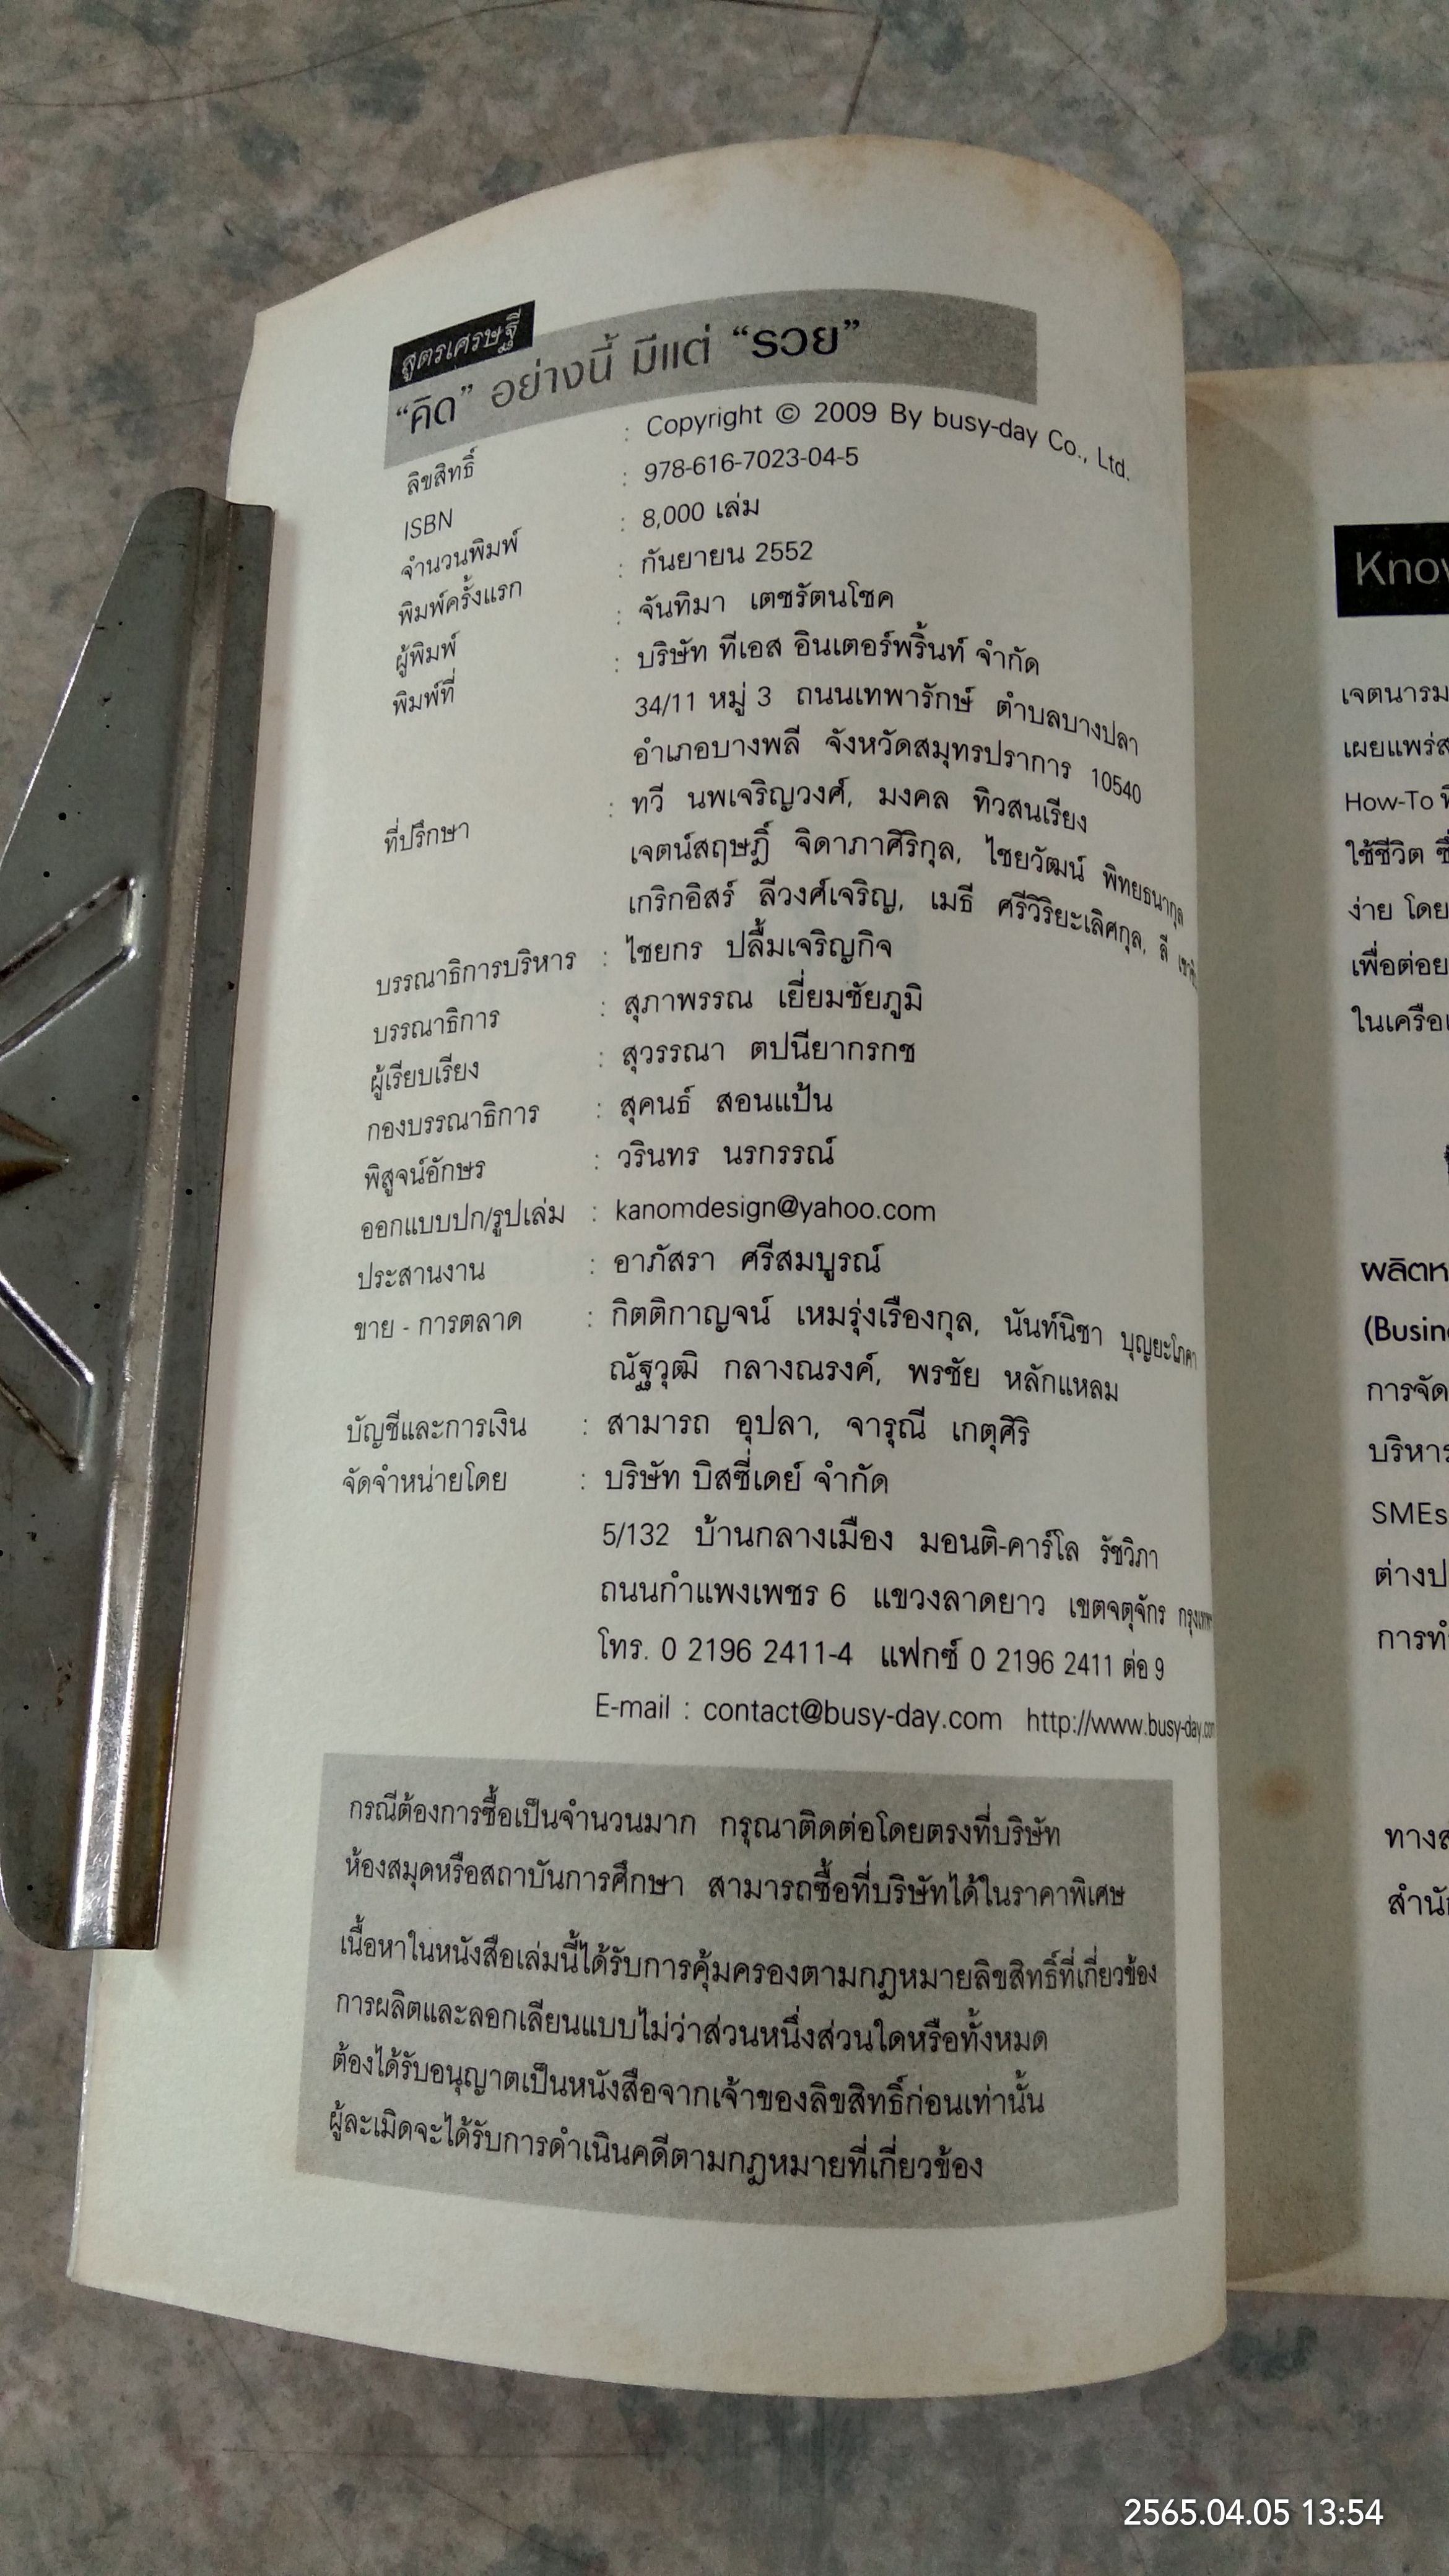 สูตรเศรษฐี
“คิด” อย่างนี้ มีแต่ “รวย”
ลิขสิทธิ์ : Copyright © 2009 By busy-day Co., Ltd.
ISBN : 978-616-7023-04-5
จำนวนพิมพ์ : 8,000 เล่ม
พิมพ์ครั้งแรก : กันยายน 2552
ผู้พิมพ์ : จันทิมา เตชรัตนโชค
พิมพ์ที่ : บริษัท ทีเอส อินเตอร์พริ้นท์ จำกัด
34/11 หมู่ 3 ถนนเทพารักษ์ ตำบลบางปลา
อำเภอบางพลี จังหวัดสมุทรปราการ 10540
ที่ปรึกษา : ทวี นพเจริญวงศ์, มงคล ทิวสนเรียง
เจตน์สฤษฎิ์ จิดาภาศิริกุล, ไชยวัฒน์ พิทยธนากุล
เกริกอิสร์ ลีวงศ์เจริญ, เมธี ศรีวิริยะเลิศกุล, ลี
บรรณาธิการบริหาร : ไชยกร ปลื้มเจริญกิจ
บรรณาธิการ : สุภาพรรณ เยี่ยมชัยภูมิ
ผู้เรียบเรียง : สุวรรณา ตปนียากรกช
กองบรรณาธิการ : สุคนธ์ สอนแป้น
พิสูจน์อักษร : วรินทร นรกรรณ์
ออกแบบปก/รูปเล่ม : kanomdesign@yahoo.com
ประสานงาน : อาภัสรา ศรีสมบูรณ์
ขาย - การตลาด : กิตติกาญจน์ เหมรุ่งเรืองกุล, นันท์นิชา บุญยะโภคา
ณัฐวุฒิ กลางณรงค์, พรชัย หลักแหลม
บัญชีและการเงิน : สามารถ อุปลา, จารุณี เกตุศิริ
จัดจำหน่ายโดย : บริษัท บิสซี่เดย์ จำกัด
5/132 บ้านกลางเมือง มอนติ-คาร์โล รัชวิภา
ถนนกำแพงเพชร 6 แขวงลาดยาว เขตจตุจักร
โทร. 0 2196 2411-4 แฟกซ์ 0 2196 2411 ต่อ 9
E-mail : contact@busy-day.com http://www.busy-day.com
กรณีต้องการซื้อเป็นจำนวนมาก กรุณาติดต่อโดยตรงที่บริษัท
ห้องสมุดหรือสถาบันการศึกษา สามารถซื้อที่บริษัทได้ในราคาพิเศษ
เนื้อหาในหนังสือเล่มนี้ได้รับการคุ้มครองตามกฎหมายลิขสิทธิ์ที่เกี่ยวข้อง
การผลิตและลอกเลียนแบบไม่ว่าส่วนหนึ่งส่วนใดหรือทั้งหมด
ต้องได้รับอนุญาตเป็นหนังสือจากเจ้าของลิขสิทธิ์ก่อนเท่านั้น
ผู้ละเมิดจะได้รับการดำเนินคดีตามกฎหมายที่เกี่ยวข้อง
เจตนารม
เผยแพร่
How-To
ใช้ชีวิต
ง่าย โดย
เพื่อต่อย
ในเครือ
ผลิตห
(Busin
การจัด
บริหาร
SMEs
ต่างป
การทำ
ทาง
สำนั
2565.04.05 13:54